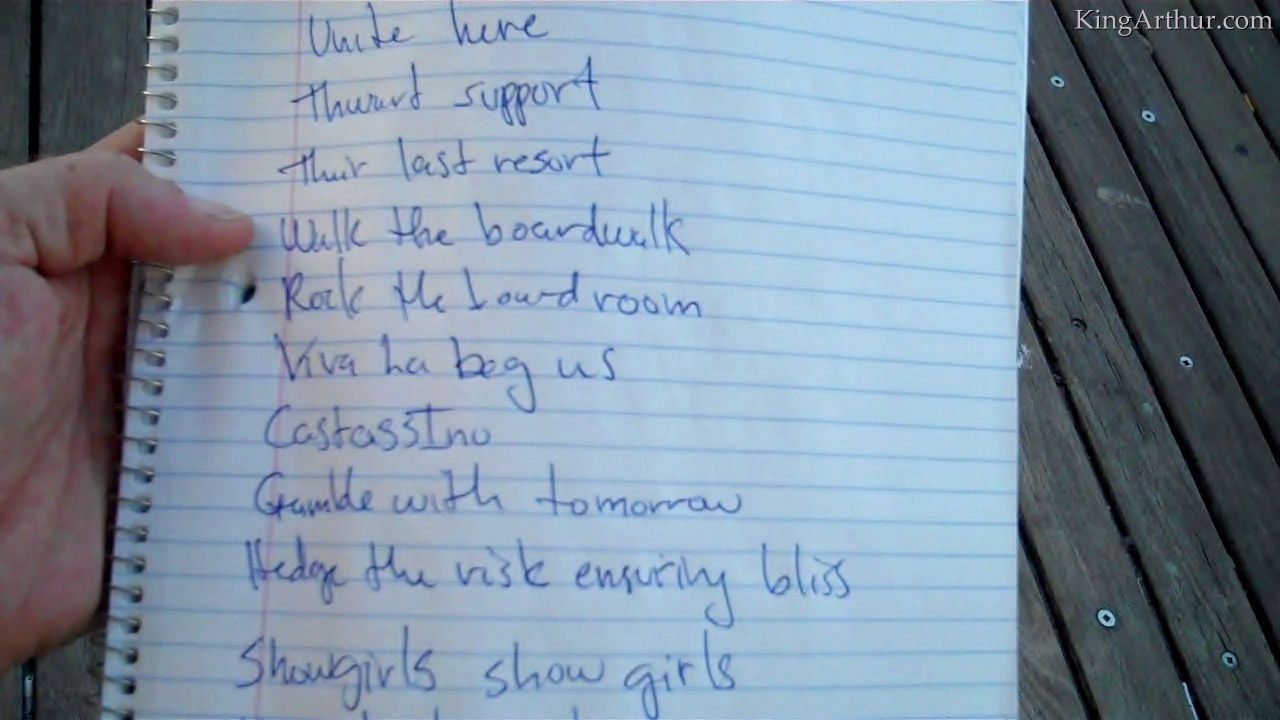 KingArthur.com
Unite here
Thwart support
Their last resort
Walk the boardwalk
Rock the board room
Viva La beg us
CastassIno
Gamble with tomorrow
Hedge the risk ensuring bliss
Showgirls show girls